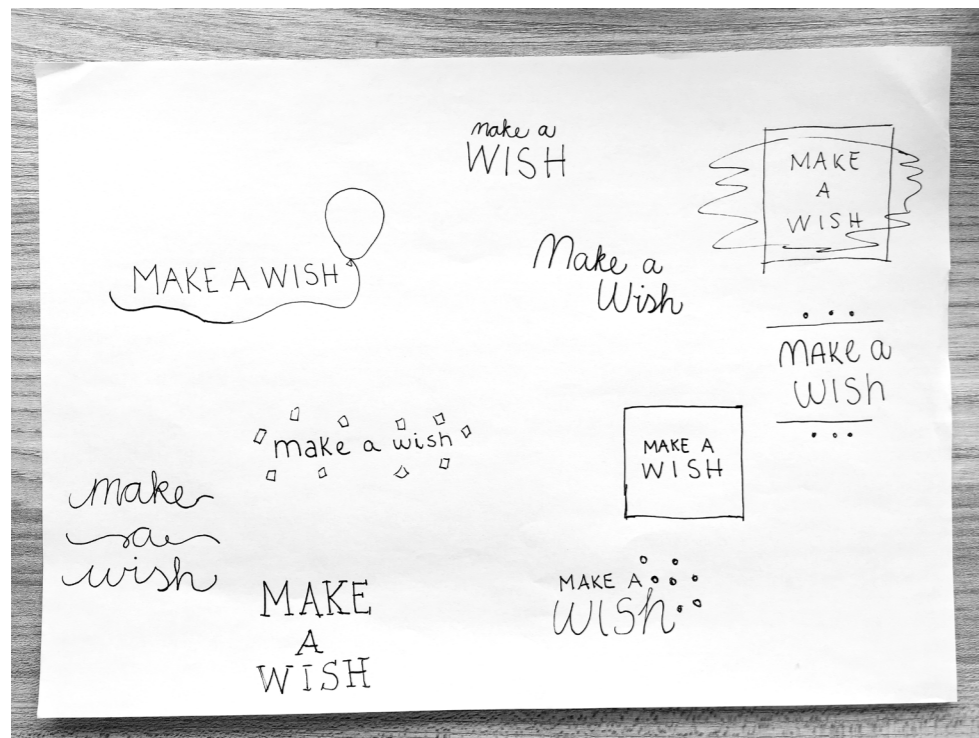 make a
WISH
MAKE
A
WISH
MAKE A WISH
Make a
Wish
MAKe a
WISH
make a wish
MAKE A
WISH
make
a
wish
MAKE A
WISh
MAKE
A
WISH